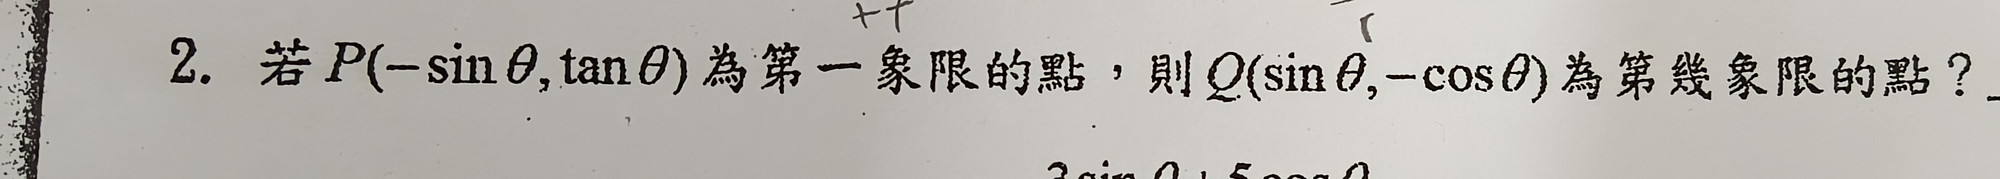 ++
2. 若 P(−sin θ, tan θ) 為第一象限的點，則 Q(sin θ, −cos θ) 為第幾象限的點？